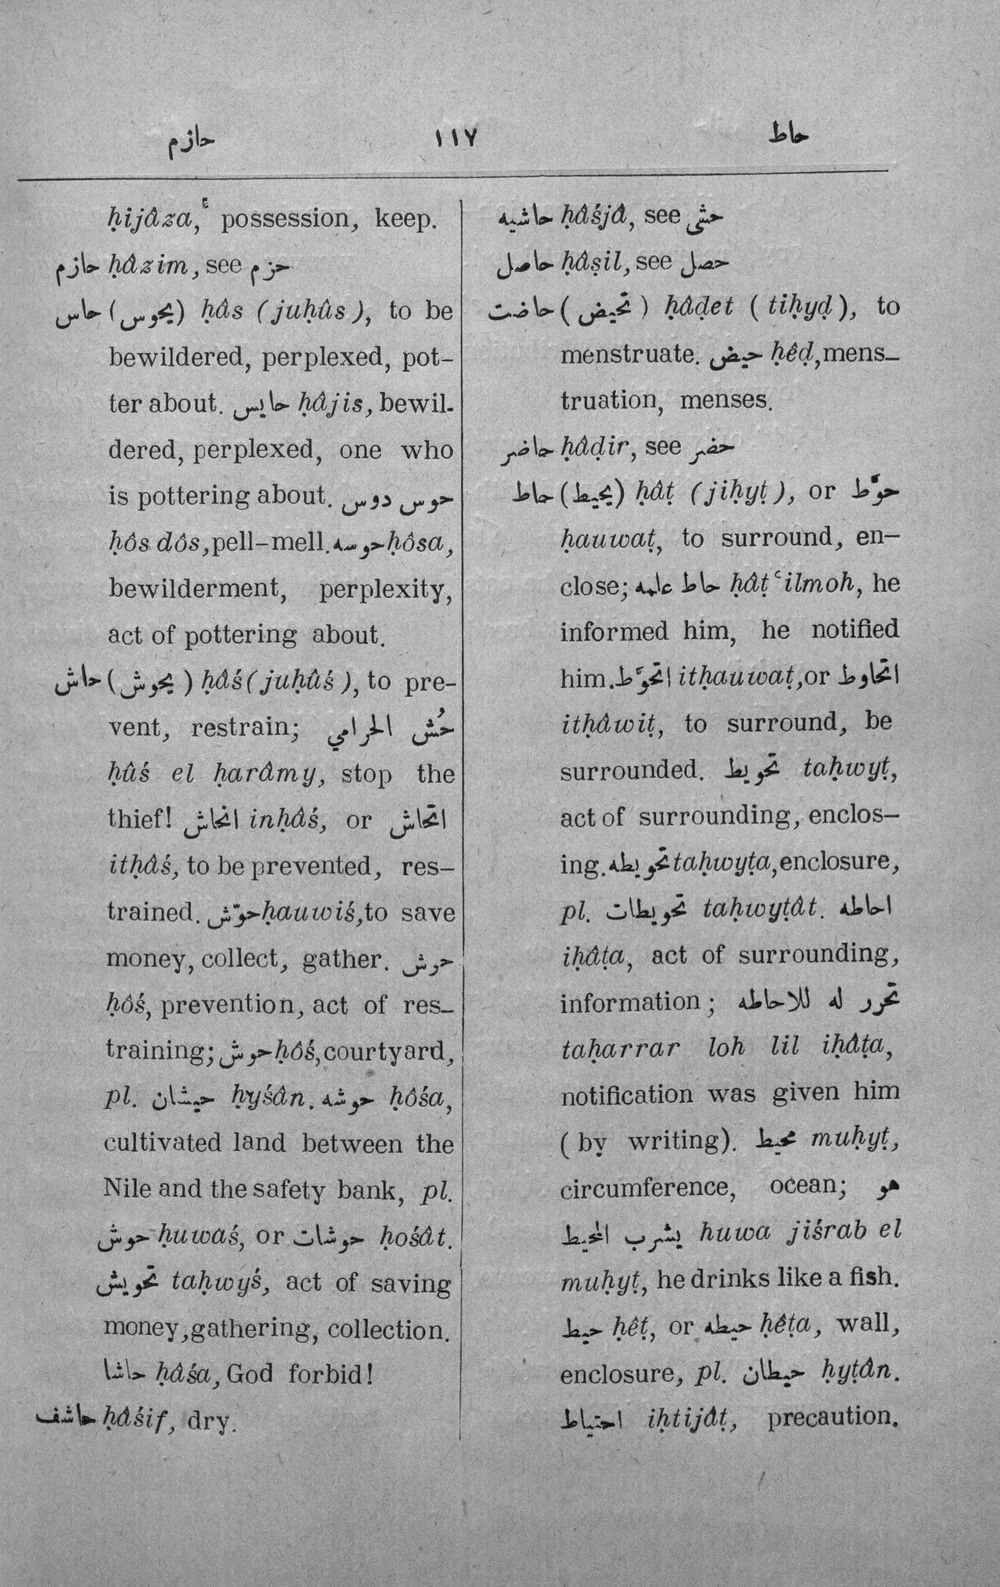 حازم ١١٧ حاط
ḥijâza, possession, keep.
حازم ḥâzim, see حزم
حاس (يحوس) ḥâs (juḥûs), to be
bewildered, perplexed, pot-
ter about. حايس ḥâjis, bewil-
dered, perplexed, one who
is pottering about. حوس دوس
ḥôs dôs, pell-mell. حوسه ḥôsa,
bewilderment, perplexity,
act of pottering about.
حاش (يحوش) ḥâś (juḥûś), to pre-
vent, restrain; حُش الحرامي
ḥûś el ḥarâmy, stop the
thief! انحاش inḥâś, or اتحاش
itḥâś, to be prevented, res-
trained. حوّش ḥauwiś, to save
money, collect, gather. حوش
ḥôś, prevention, act of res-
training; حوش ḥôś, courtyard,
pl. حيشان ḥyśân. حوشه ḥôśa,
cultivated land between the
Nile and the safety bank, pl.
حوش ḥuwaś, or حوشات ḥośât.
تحويش taḥwyś, act of saving
money, gathering, collection.
حاشا ḥâśa, God forbid!
حاشف ḥâśif, dry.
حاشيه ḥâśjâ, see حشى
حاصل ḥâṣil, see حصل
حاضت (تحيض) ḥâḍet (tiḥyḍ), to
menstruate. حيض ḥêḍ, mens-
truation, menses.
حاضر ḥâḍir, see حضر
حاط (يحيط) ḥâṭ (jiḥyṭ), or حوَّط
ḥauwaṭ, to surround, en-
close; حاط علمه ḥâṭ ʿilmoh, he
informed him, he notified
him. اتحوَّط itḥauwaṭ, or اتحاوط
itḥâwiṭ, to surround, be
surrounded. تحويط taḥwyṭ,
act of surrounding, enclos-
ing. تحويطه taḥwyṭa, enclosure,
pl. تحويطات taḥwyṭât. احاطه
iḥâṭa, act of surrounding,
information; تحرر له للاحاطه
taḥarrar loh lil iḥâṭa,
notification was given him
(by writing). محيط muḥyṭ,
circumference, ocean; هو
يشرب المحيط huwa jiśrab el
muḥyṭ, he drinks like a fish.
حيط ḥêṭ, or حيطه ḥêṭa, wall,
enclosure, pl. حيطان ḥyṭân.
احتياط iḥtijâṭ, precaution.